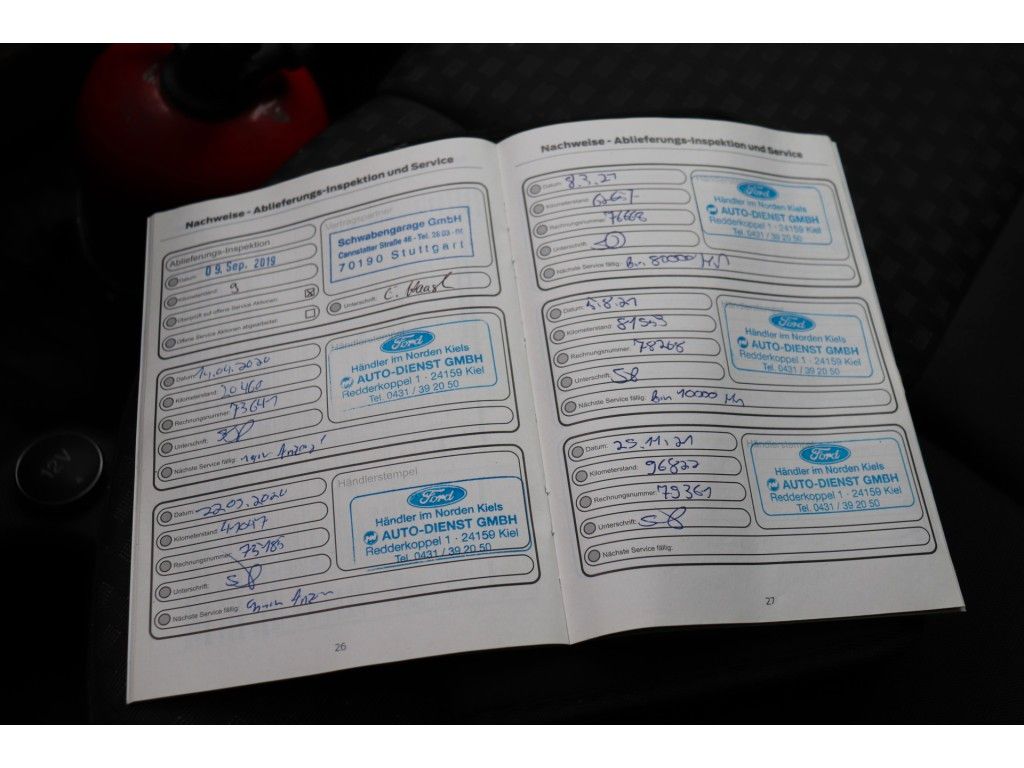 Nachweise - Ablieferungs-Inspektion und Service
Ablieferungs-Inspektion
Datum: 09. Sep. 2019
Kilometerstand: 9
Überprüft auf offene Service Aktionen:
Offene Service Aktionen abgearbeitet:
Vertragspartner
Schwabengarage GmbH
Cannstatter Straße 46 - Tel. 28 03 - nr.
70190 Stuttgart
Unterschrift:
Datum: 14.04.2020
Kilometerstand: 20460
Rechnungsnummer: 73641
Unterschrift:
Nächste Service fällig:
Händlerstempel
Ford
Händler im Norden Kiels
AUTO-DIENST GMBH
Redderkoppel 1 · 24159 Kiel
Tel. 0431 / 39 20 50
Datum: 22.09.2020
Kilometerstand:
Rechnungsnummer:
Unterschrift:
Nächste Service fällig:
Händlerstempel
Ford
Händler im Norden Kiels
AUTO-DIENST GMBH
Redderkoppel 1 - 24159 Kiel
Tel. 0431 / 39 20 50
26
Nachweise - Ablieferungs-Inspektion und Service
Datum: 8.3.21
Kilometerstand:
Rechnungsnummer: 76668
Unterschrift:
Nächste Service fällig: Bin 80000
Ford
Händler im Norden Kiels
AUTO-DIENST GMBH
Redderkoppel 1 · 24159 Kiel
Tel. 0431 / 39 20 50
Datum: 5.8.21
Kilometerstand:
Rechnungsnummer: 78268
Unterschrift:
Nächste Service fällig: Bin 10000
Händlerstempel
Ford
Händler im Norden Kiels
AUTO-DIENST GMBH
Redderkoppel 1 · 24159 Kiel
Tel. 0431 / 39 20 50
Datum: 23.11.21
Kilometerstand: 96822
Rechnungsnummer: 79361
Unterschrift:
Nächste Service fällig:
Händlerstempel
Ford
Händler im Norden Kiels
AUTO-DIENST GMBH
Redderkoppel 1 · 24159 Kiel
Tel. 0431 / 39 20 50
27
12V